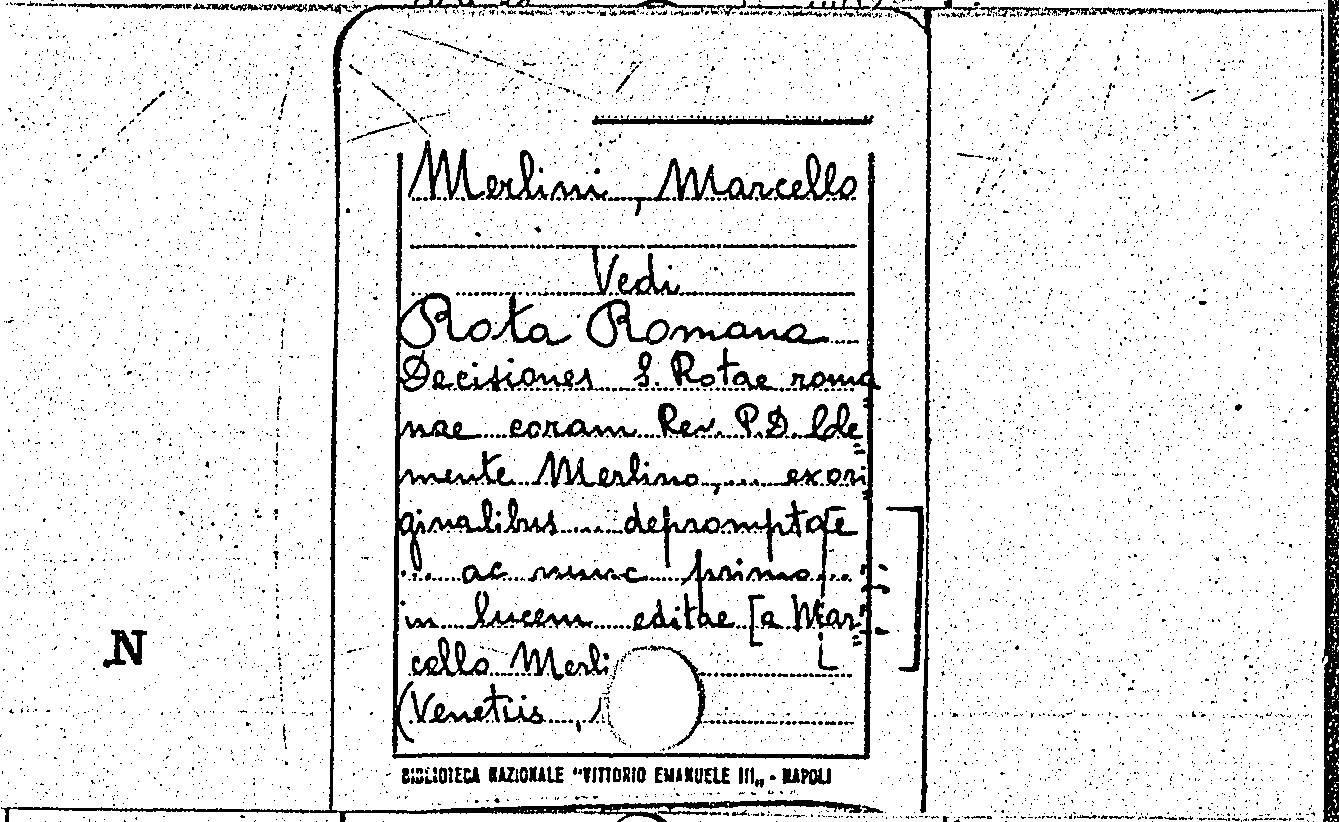 Merlini, Marcello
Vedi
Rota Romana
Decisiones S. Rotae roma
nae coram Rev. P.D. Cle
mente Merlino, ... exori
ginalibus ... depromptae
... ac nunc primo ...
in lucem editae [a Mar
cello Merli
(Venetiis,
BIBLIOTECA NAZIONALE "VITTORIO EMANUELE III„ - NAPOLI
N